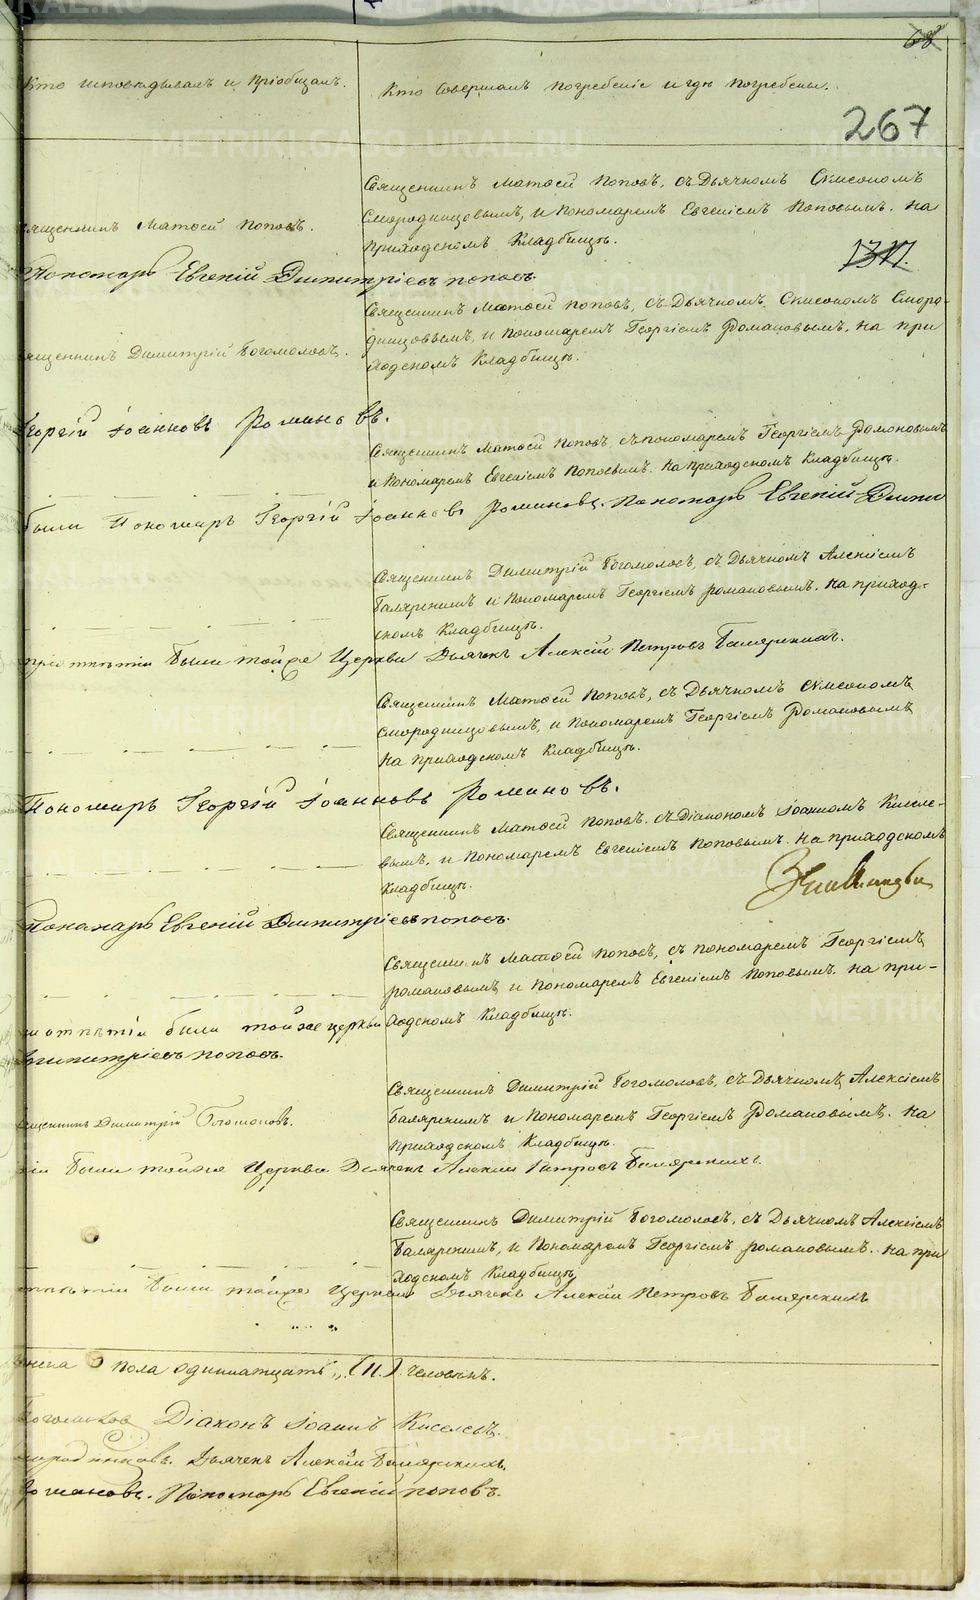 68
Кто исповѣдывалъ и пріобщалъ.
Кто совершалъ погребеніе и гдѣ погребены.
267
Священникъ Матѳей Поповъ, съ Дьячкомъ Симеономъ
Смородинцовымъ, и Пономаремъ Евгеніемъ Поповымъ. на
приходскомъ Кладбищѣ.
священникъ Матѳей Поповъ.
Пономарь Евгеній Димитріевъ Поповъ.
Священникъ Матѳей Поповъ, съ Дьячкомъ Симеономъ Сморо-
динцовымъ, и Пономаремъ Георгіемъ Романовымъ. на при
ходскомъ Кладбищѣ.
ященникъ Димитрій Богомоловъ.
Георгій Іоанновъ Романовъ.
Священникъ Матѳей Поповъ съ пономаремъ Георгіемъ Романовымъ
и Пономаремъ Евгеніемъ Поповымъ. на приходскомъ Кладбищѣ.
были Пономарь Георгій Іоанновъ Романовъ. Пономарь Евгеній Дими
Священникъ Димитрій Богомоловъ, съ Дьячкомъ Алексіемъ
и Пономаремъ Георгіемъ Романовымъ. на приход-
скомъ Кладбищѣ.
при отпѣтіи были тойже Церкви Дьячекъ Алексій Петровъ
Священникъ Матѳей Поповъ, съ Дьячкомъ Симеономъ
Смородинцовымъ, и Пономаремъ Георгіемъ Романовымъ
на приходскомъ Кладбищѣ.
Пономарь Георгій Іоанновъ Романовъ.
Священникъ Матѳей Поповъ. съ Діакономъ Іоанномъ Киселе-
вымъ, и Пономаремъ Евгеніемъ Поповымъ. на приходскомъ
Кладбищѣ.
Пономарь Евгеній Димитріевъ Поповъ.
Священникъ Матѳей Поповъ, съ пономаремъ Георгіемъ
Романовымъ и Пономаремъ Евгеніемъ Поповымъ. на при-
ходскомъ Кладбищѣ.
и отпѣтіи были тойже церкви
Димитріевъ Поповъ.
Священникъ Димитрій Богомоловъ, съ Дьячкомъ Алексіемъ
и Пономаремъ Георгіемъ Романовымъ. на
приходскомъ Кладбищѣ.
ященникъ Димитрій Богомоловъ.
іи были тойже Церкви Дьячекъ Алексій Петровъ
Священникъ Димитрій Богомоловъ, съ Дьячкомъ Алексіемъ
и Пономаремъ Георгіемъ Романовымъ. на при
ходскомъ Кладбищѣ
отпѣтіи были тойже Церкви Дьячекъ Алексій Петровъ
пола одиннатцать (11.) человѣкъ.
Богомоловъ Діаконъ Іоаннъ Киселевъ.
Дьячекъ Алексій
Романовъ. Пономарь Евгеній Поповъ.
METRIKI.GASO-URAL.RU